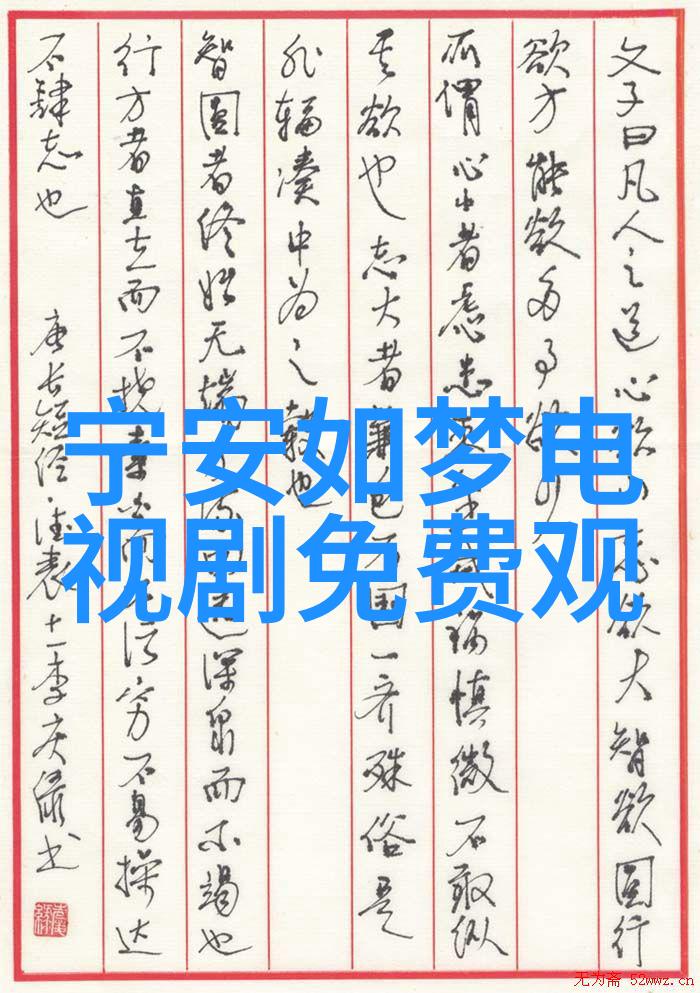 文子曰凡人之道心欲小志欲大智欲圆行
欲方能欲多事欲少
所谓心小者虑患未生戒祸慎微不敢纵
其欲也志大者兼包万国一齐殊俗是
非辐凑中为之毂也
智圆者终始无端流四远深泉而不竭也
行方者直立而不挠素白而不污穷不易操达
不肆志也
唐长短经·德表十一李庆书
宁安如梦电
视剧免费观
无为斋 52wwz.cn